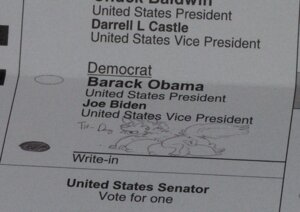 Chuck Baldwin
United States President
Darrell L Castle
United States Vice President
Democrat
Barack Obama
United States President
Joe Biden
United States Vice President
Write-in
United States Senator
Vote for one